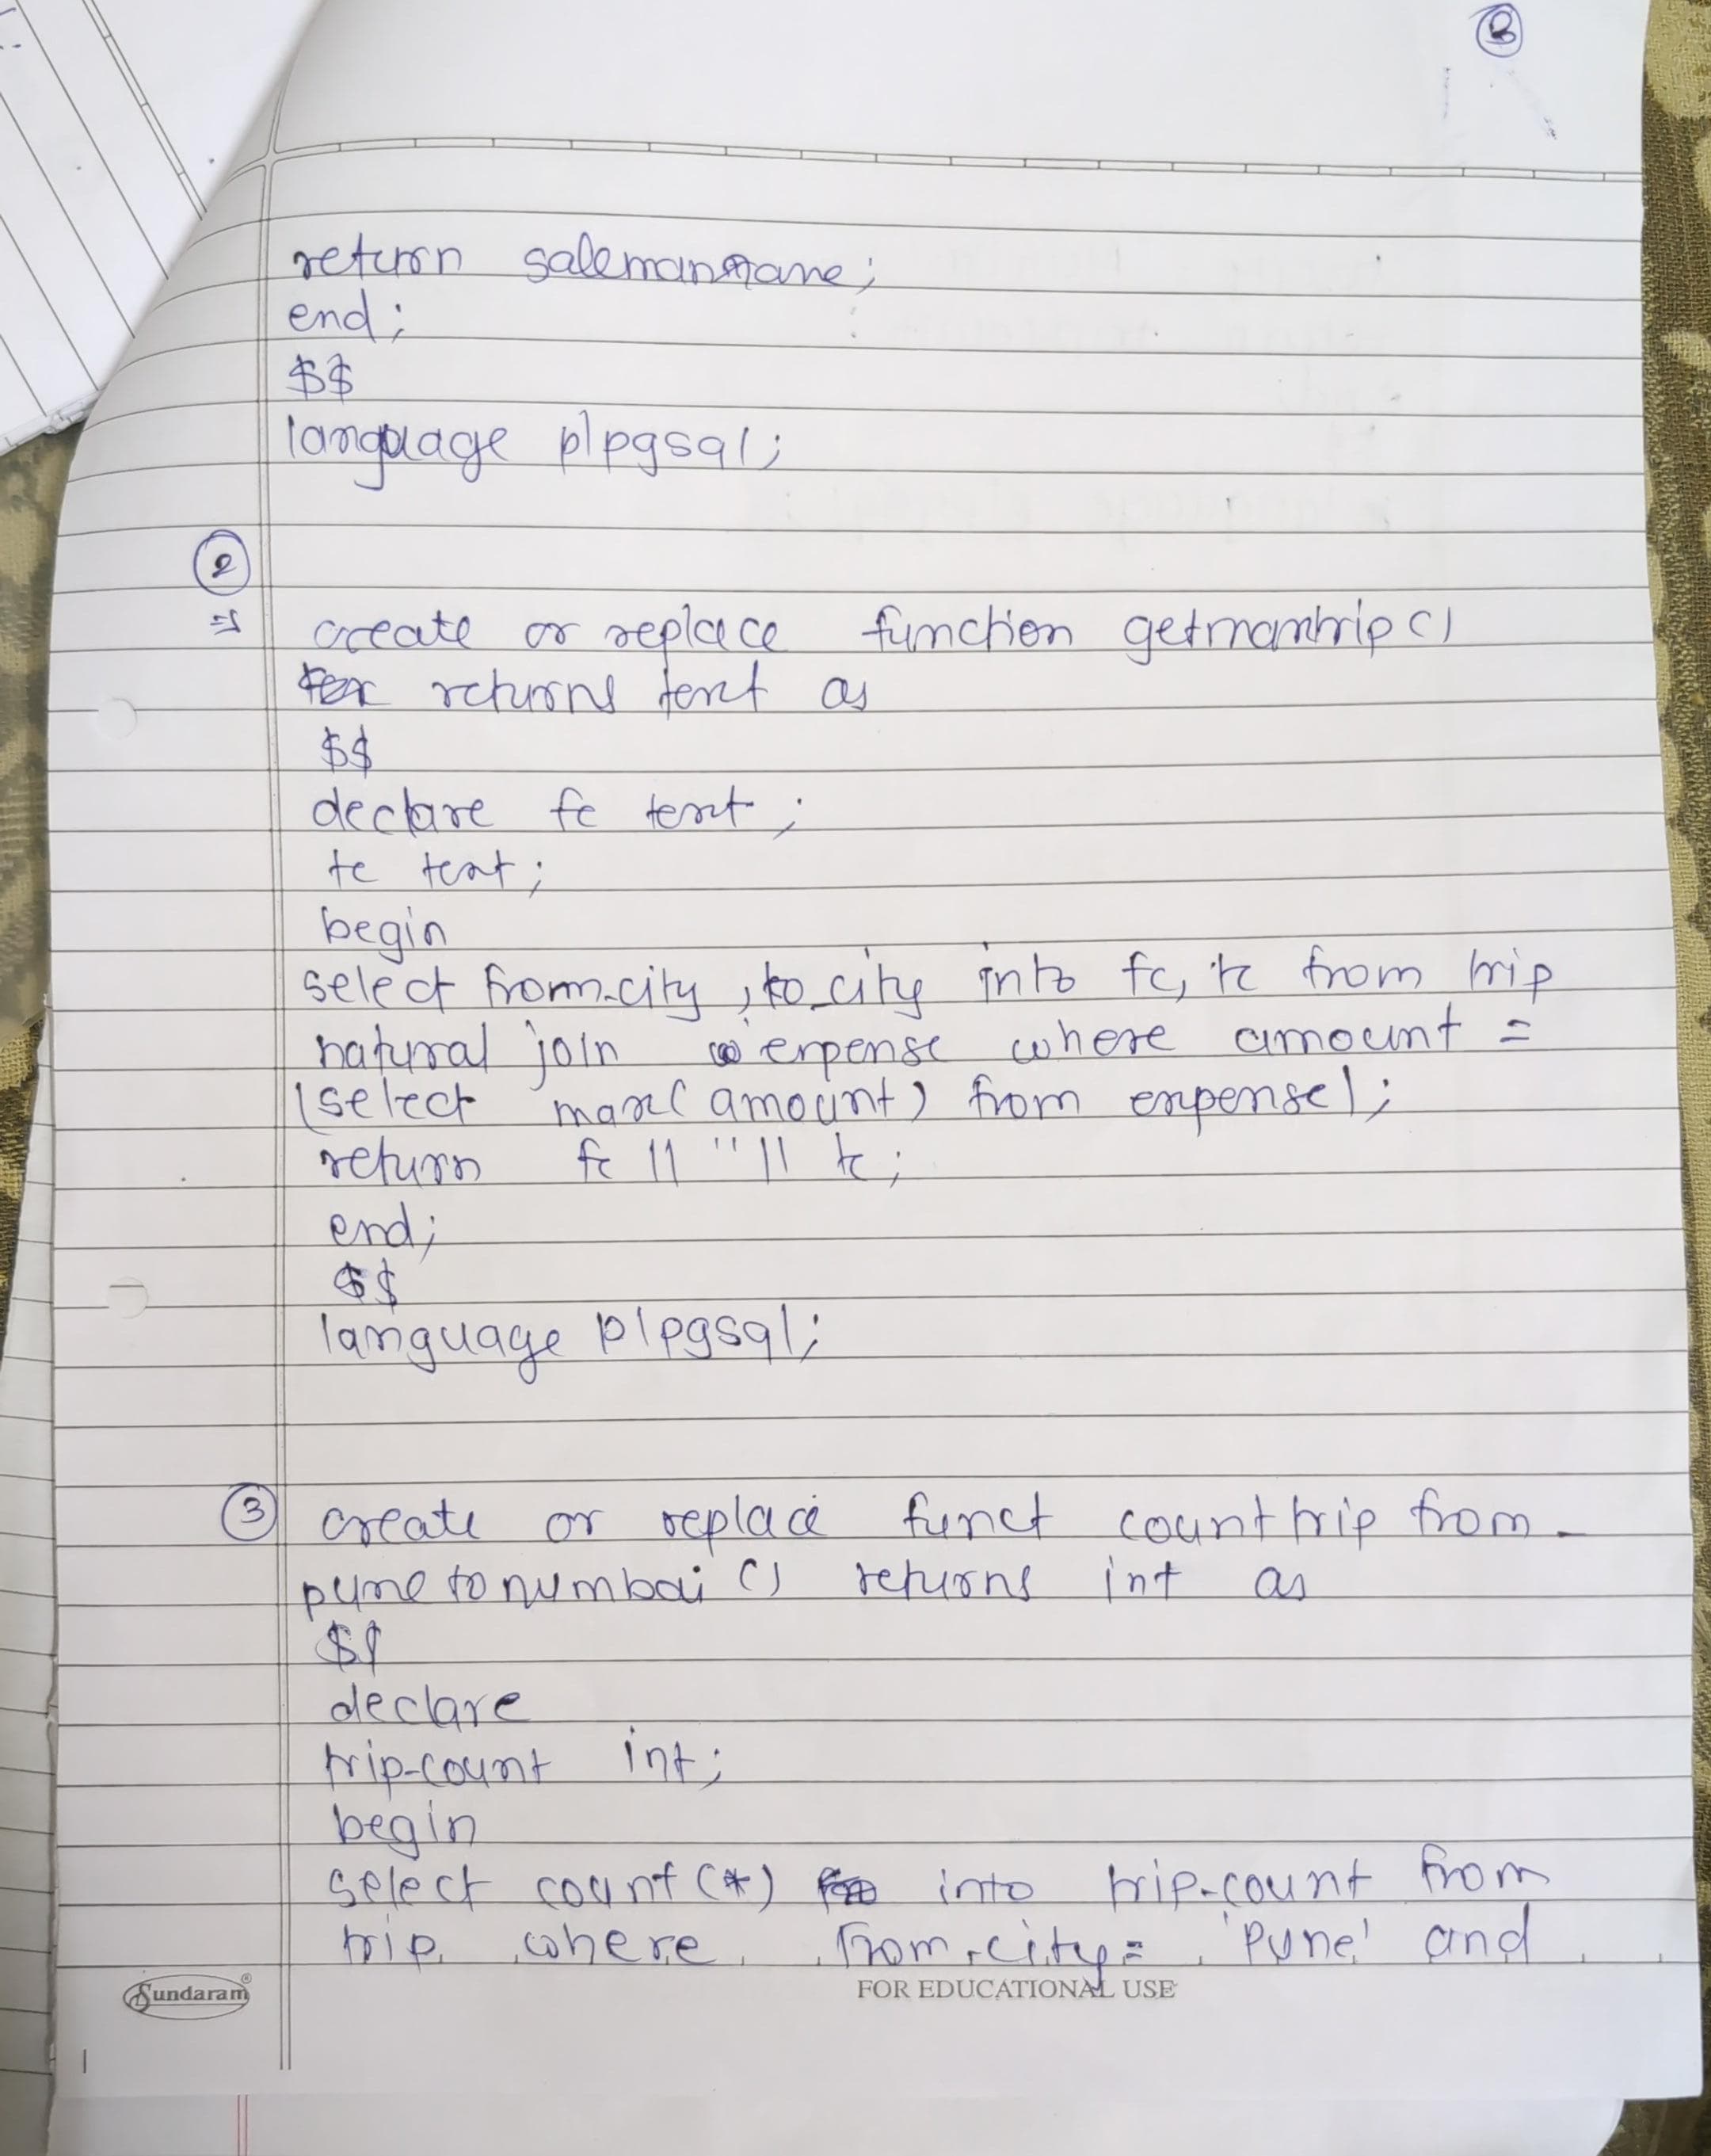 3
return salemanname;
end;
$$
language plpgsql;
2
⇒ create or replace function getmaxtrip()
returns text as
$$
declare fc text;
tc text;
begin
select from_city, to_city into fc, tc from trip
natural join expense where amount =
(select max(amount) from expense);
return fc || " || tc;
end;
$$
language plpgsql;
3 create or replace funct counttrip from-
punetonumbai() returns int as
$$
declare
trip-count int;
begin
select count(*) into trip-count from
trip where from-city= 'Pune' and
Sundaram®
FOR EDUCATIONAL USE